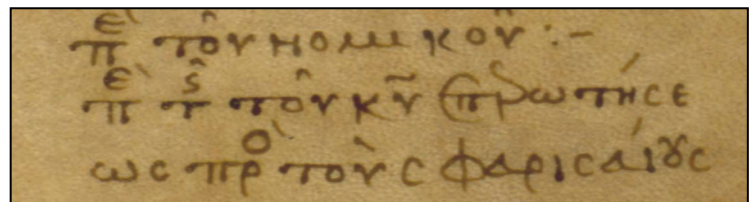 πε τοῦ νομικοῦ :–
πε τς τοῦ κ̅υ̅ ἐπερωτήσε
ως προ τοὺς φαρισαίους